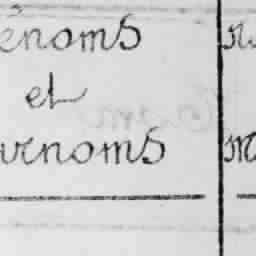 énoms
et
urnoms